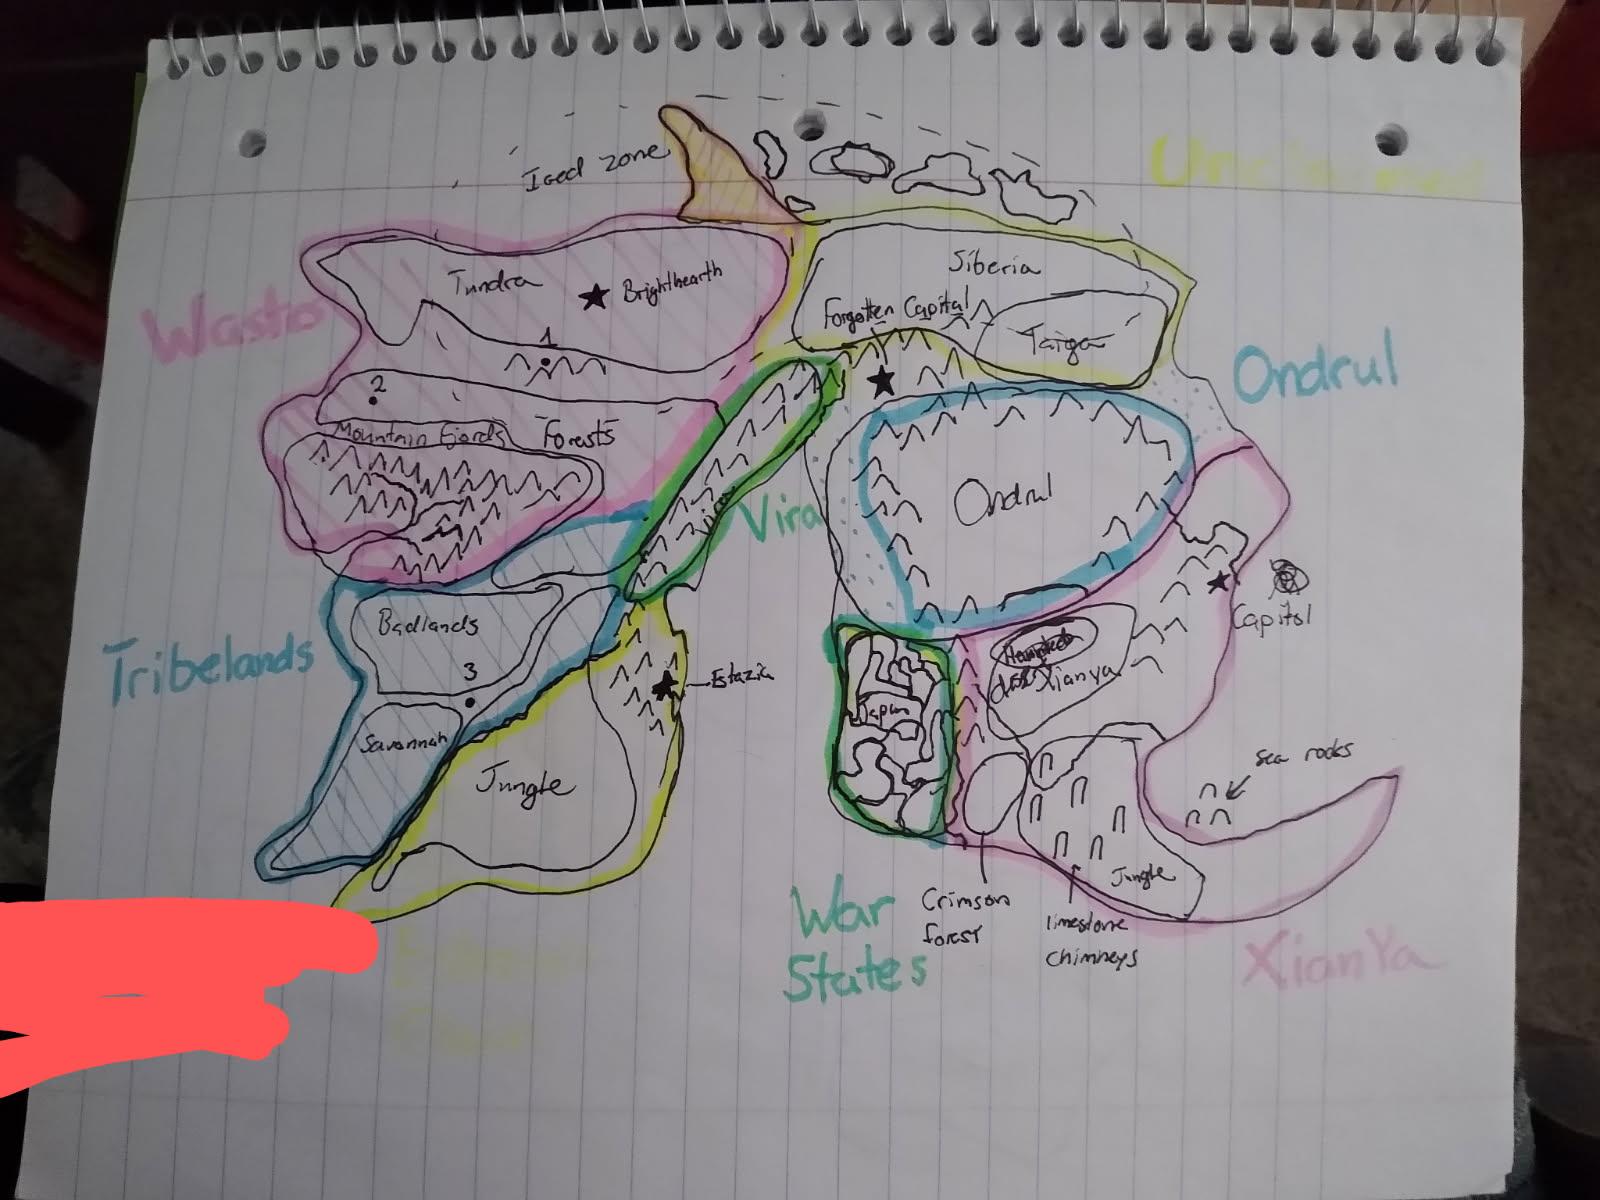 Iced zone
Tundra
Brighthearth
Siberia
Forgotten Capital
Taiga
1
2
Mountain fjords
Forests
Ondrul
Ondrul
Vira
Tribelands
Badlands
3
Savannah
Estazia
Jungle
Japan
Xianya
Capitol
sea rocks
Jungle
War
States
Crimson
forest
limestone
chimneys
XianYa